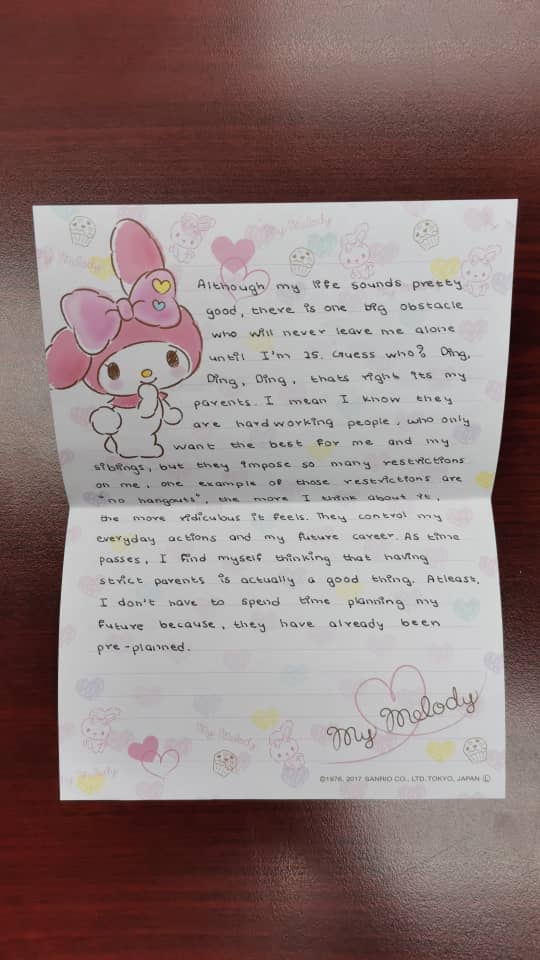 Although my life sounds pretty
good, there is one big obstacle
who will never leave me alone
until I'm 25. Guess who? Ding,
Ding, Ding, thats right its my
parents. I mean I know they
are hardworking people, who only
want the best for me and my
siblings, but they impose so many restrictions
on me, one example of those restrictions are
"no hangouts", the more I think about it,
the more ridiculous it feels. They control my
everyday actions and my future career. As time
passes, I find myself thinking that having
strict parents is actually a good thing. Atleast,
I don't have to spend time planning my
future because, they have already been
pre-planned.
My Melody
©1976, 2017 SANRIO CO., LTD. TOKYO, JAPAN Ⓛ